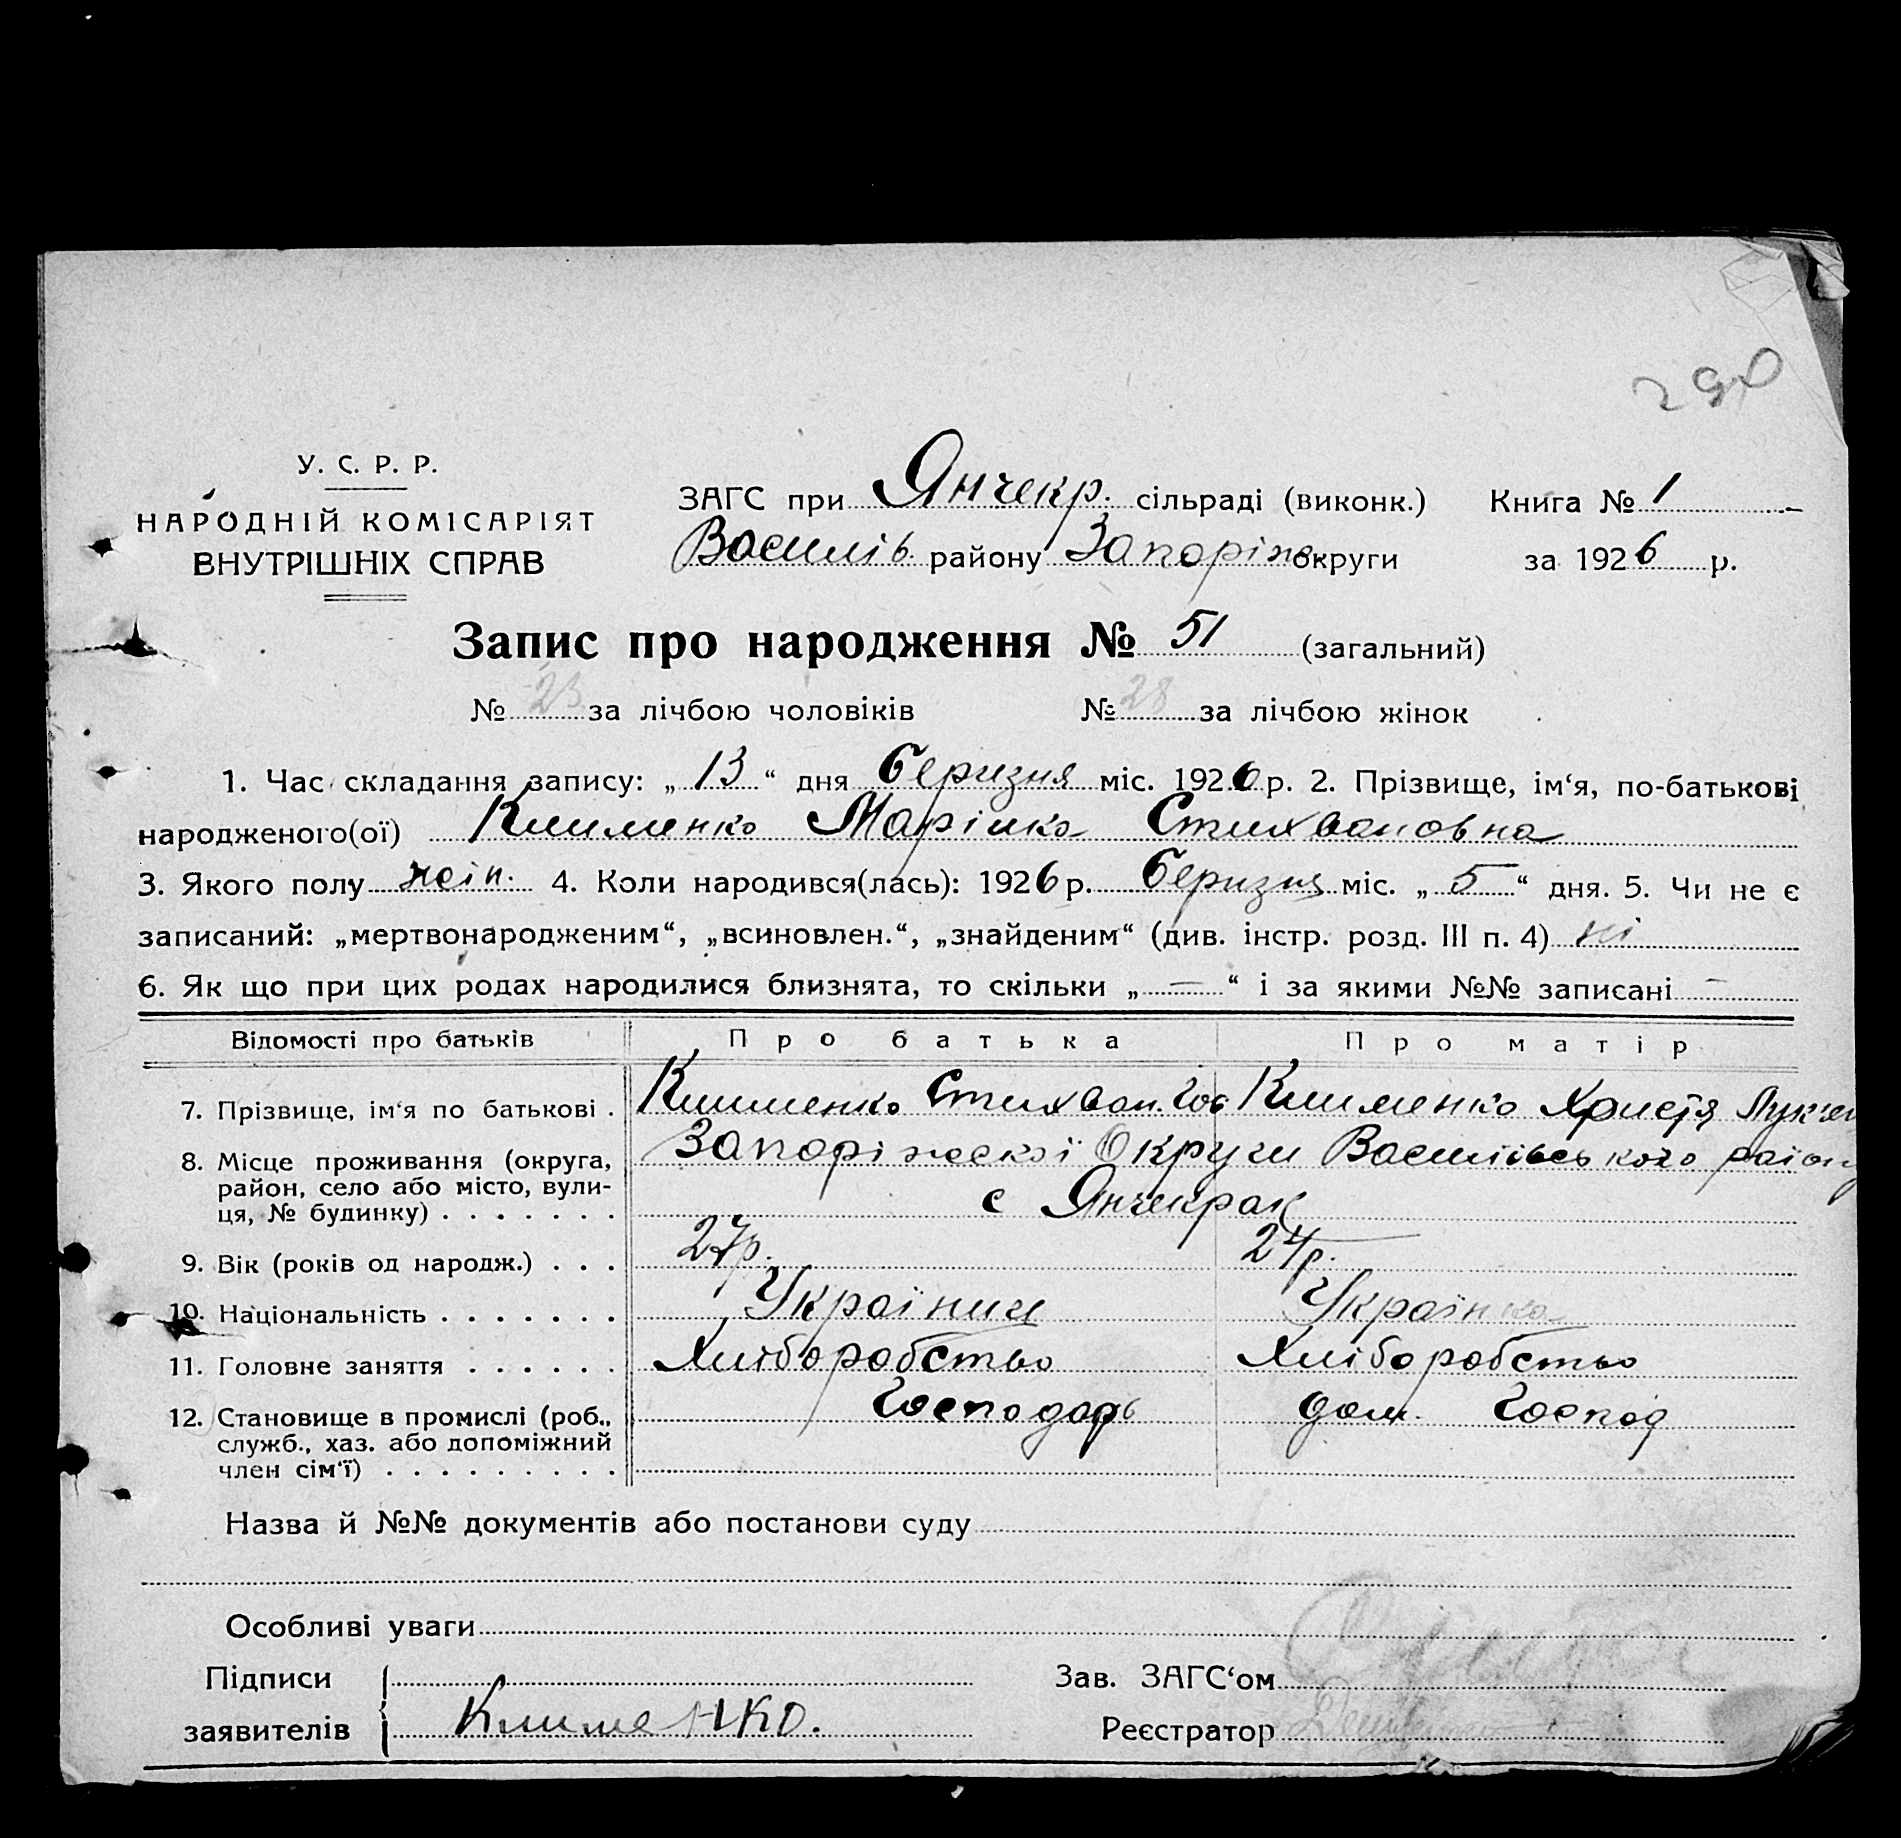 290
У. С. Р. Р.
НАРОДНІЙ КОМІСАРІЯТ
ВНУТРІШНІХ СПРАВ
ЗАГС при Янчекр. сільраді (виконк.) Книга № 1
Василів. району Запоріж. округи за 1926 р.
Запис про народження № 51 (загальний)
№ 23 за лічбою чоловіків № 28 за лічбою жінок
1. Час складання запису: „ 13 “ дня березня міс. 1926 р. 2. Прізвище, ім‘я, по-батькові
народженого(ої) Клименко Марійка Стихвановна
3. Якого полу жін. 4. Коли народився(лась): 1926 р. березня міс. „ 5 “ дня. 5. Чи не є
записаний: „мертвонародженим“, „всиновлен.“, „знайденим“ (див. інстр. розд. III п. 4) ні
6. Як що при цих родах народилися близнята, то скільки „ — “ і за якими №№ записані —
Відомості про батьків Про батька Про матір
7. Прізвище, ім‘я по батькові . Клименко Стихван Клименко Христя
8. Місце проживання (округа, Запоріжської Округи Василівського району
район, село або місто, вули-
ця, № будинку) . . . . . . . с Янчекрак
9. Вік (років од народж.) . . . 27р. 24р.
10. Національність . . . . . . . Українец Українка
11. Головне заняття . . . . . . Хліборобство Хліборобство
12. Становище в промислі (роб., Господарь дом. Господ
служб., хаз. або допоміжний
член сім‘ї) . . . . . . . . .
Назва й №№ документів або постанови суду
Особливі уваги
Підписи Зав. ЗАГС‘ом
заявителів Клименко. Реєстратор